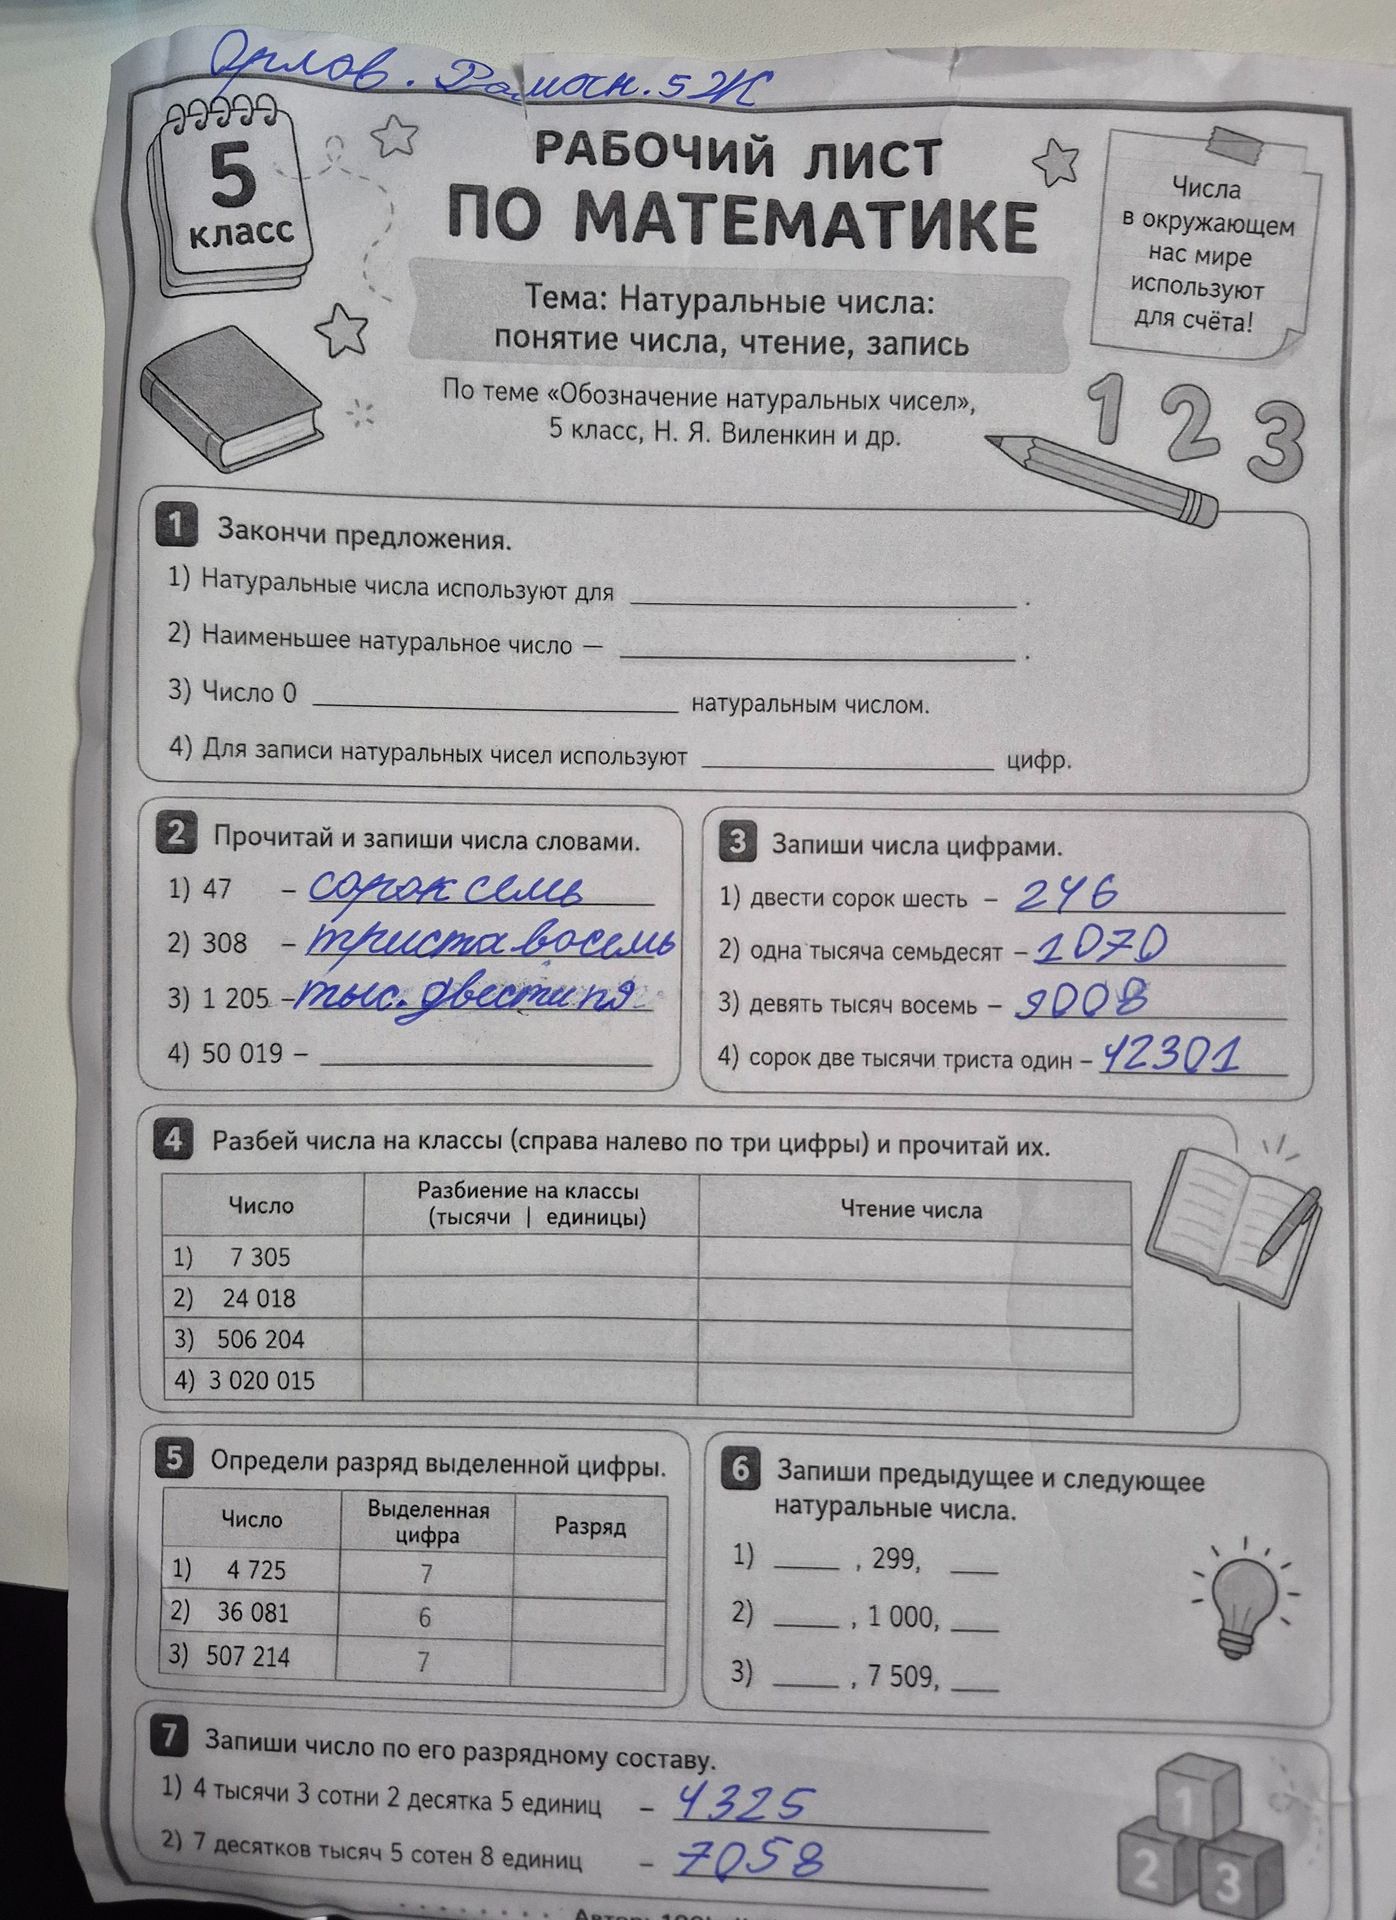 Орлов. Рамин. 5Ж
5
класс
РАБОЧИЙ ЛИСТ
ПО МАТЕМАТИКЕ
Числа
в окружающем
нас мире
используют
для счёта!
Тема: Натуральные числа:
понятие числа, чтение, запись
По теме «Обозначение натуральных чисел»,
5 класс, Н. Я. Виленкин и др.
1 2 3
1 Закончи предложения.
1) Натуральные числа используют для ____.
2) Наименьшее натуральное число — ____.
3) Число 0 ____ натуральным числом.
4) Для записи натуральных чисел используют ____ цифр.
2 Прочитай и запиши числа словами.
1) 47 – сорок семь
2) 308 – триста восемь
3) 1 205 – тыс. двести пя
4) 50 019 – ____
3 Запиши числа цифрами.
1) двести сорок шесть – 246
2) одна тысяча семьдесят – 1070
3) девять тысяч восемь – 9008
4) сорок две тысячи триста один – 42301
4 Разбей числа на классы (справа налево по три цифры) и прочитай их.
Число Разбиение на классы (тысячи | единицы) Чтение числа
1) 7 305
2) 24 018
3) 506 204
4) 3 020 015
5 Определи разряд выделенной цифры.
Число Выделенная цифра Разряд
1) 4 725 7
2) 36 081 6
3) 507 214 7
6 Запиши предыдущее и следующее
натуральные числа.
1) ____ , 299, ____
2) ____ , 1 000, ____
3) ____ , 7 509, ____
7 Запиши число по его разрядному составу.
1) 4 тысячи 3 сотни 2 десятка 5 единиц – 4325
2) 7 десятков тысяч 5 сотен 8 единиц – 7058
1
2 3